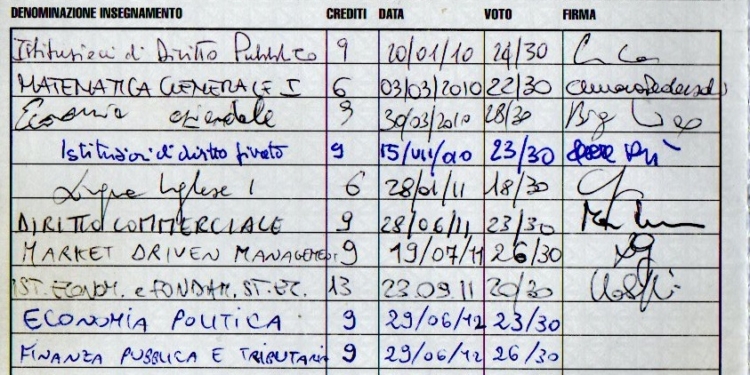 DENOMINAZIONE INSEGNAMENTO CREDITI DATA VOTO FIRMA
Istituzioni di Diritto Pubblico 9 20/01/10 24/30
MATEMATICA GENERALE I 6 03/03/2010 22/30
Economia aziendale 9 30/03/2010 28/30
Istituzioni di diritto privato 9 15/VII/010 23/30
Lingua Inglese 1 6 28/01/11 18/30
DIRITTO COMMERCIALE 9 28/06/11 23/30
MARKET DRIVEN MANAGEMENT 9 19/07/11 26/30
IST. ECONOM. e FONDAM. ST. EC. 13 23.09.11 20/30
ECONOMIA POLITICA 9 29/06/12 23/30
FINANZA PUBBLICA E TRIBUTARIA 9 29/06/12 26/30